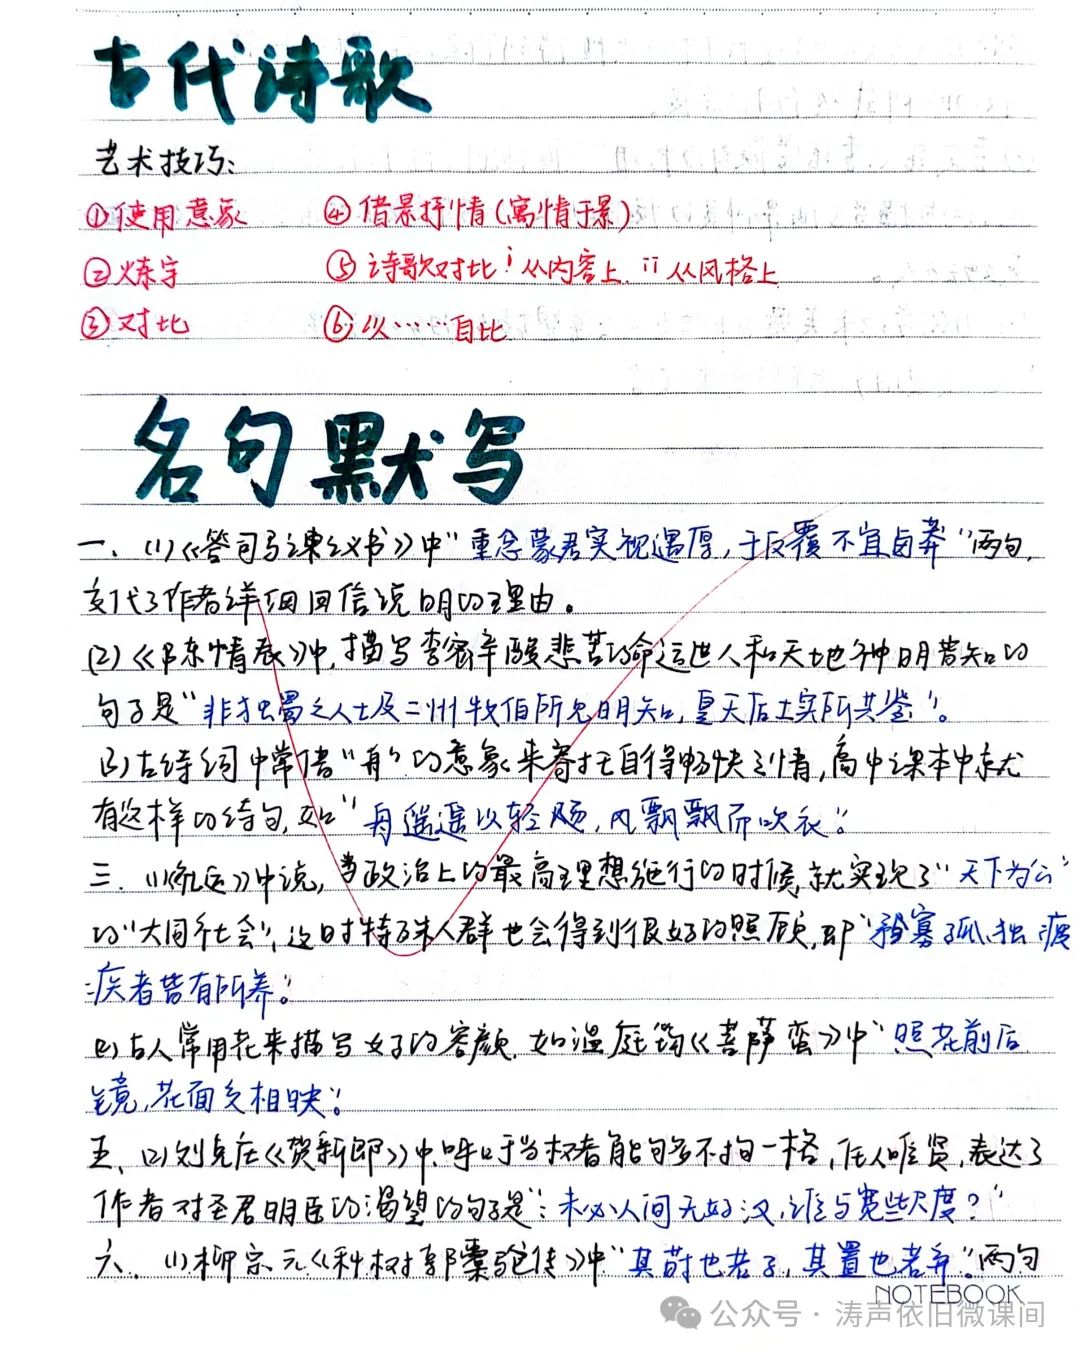 古代诗歌
艺术技巧:
①使用意象 ④借景抒情(寓情于景)
②炼字 ⑤诗歌对比 i 从内容上. ii 从风格上
③对比 ⑥以……自比
名句默写
一、(1)《答司马谏议书》中"重念蒙君实视遇厚,于反覆不宜卤莽"两句,
交代了作者详细回信说明的理由。
(2)《陈情表》中,描写李密辛酸悲苦的命运世人和天地神明皆知的
句子是"非独蜀之人士及二州牧伯所见明知,皇天后土实所共鉴"。
(3)古诗词中常借"舟"的意象来寄托自得畅快之情,高中课本中就
有这样的诗句,如"舟遥遥以轻飏,风飘飘而吹衣"。
三.(1)《礼运》中说,当政治上的最高理想施行的时候,就实现了"天下为公"
的"大同社会",这时特殊人群也会得到很好的照顾,即"矜寡孤独废
疾者皆有所养"。
(2)古人常用花来描写女子的容颜.如温庭筠《菩萨蛮》中"照花前后
镜,花面交相映"。
五、(2)刘克庄《贺新郎》中,呼吁当权者能句多不拘一格,任人唯贤,表达了
作者对圣君明臣的渴望的句子是:"未必人间无好汉,谁与宽些尺度?"
六、(1)柳宗元《种树郭橐驼传》中"其莳也若子,其置也若弃"两句
NOTEBOOK
公众号·涛声依旧微课间